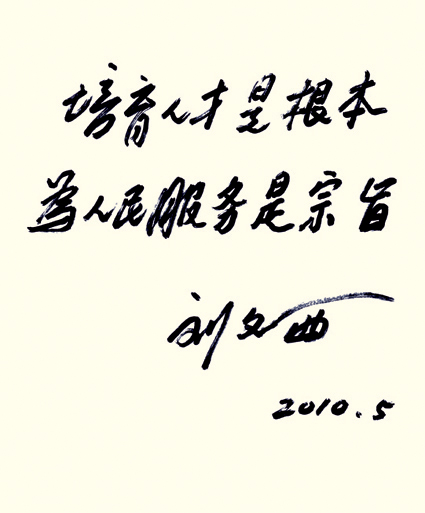 培育人才是根本
為人民服务是宗旨
刘文西
2010.5